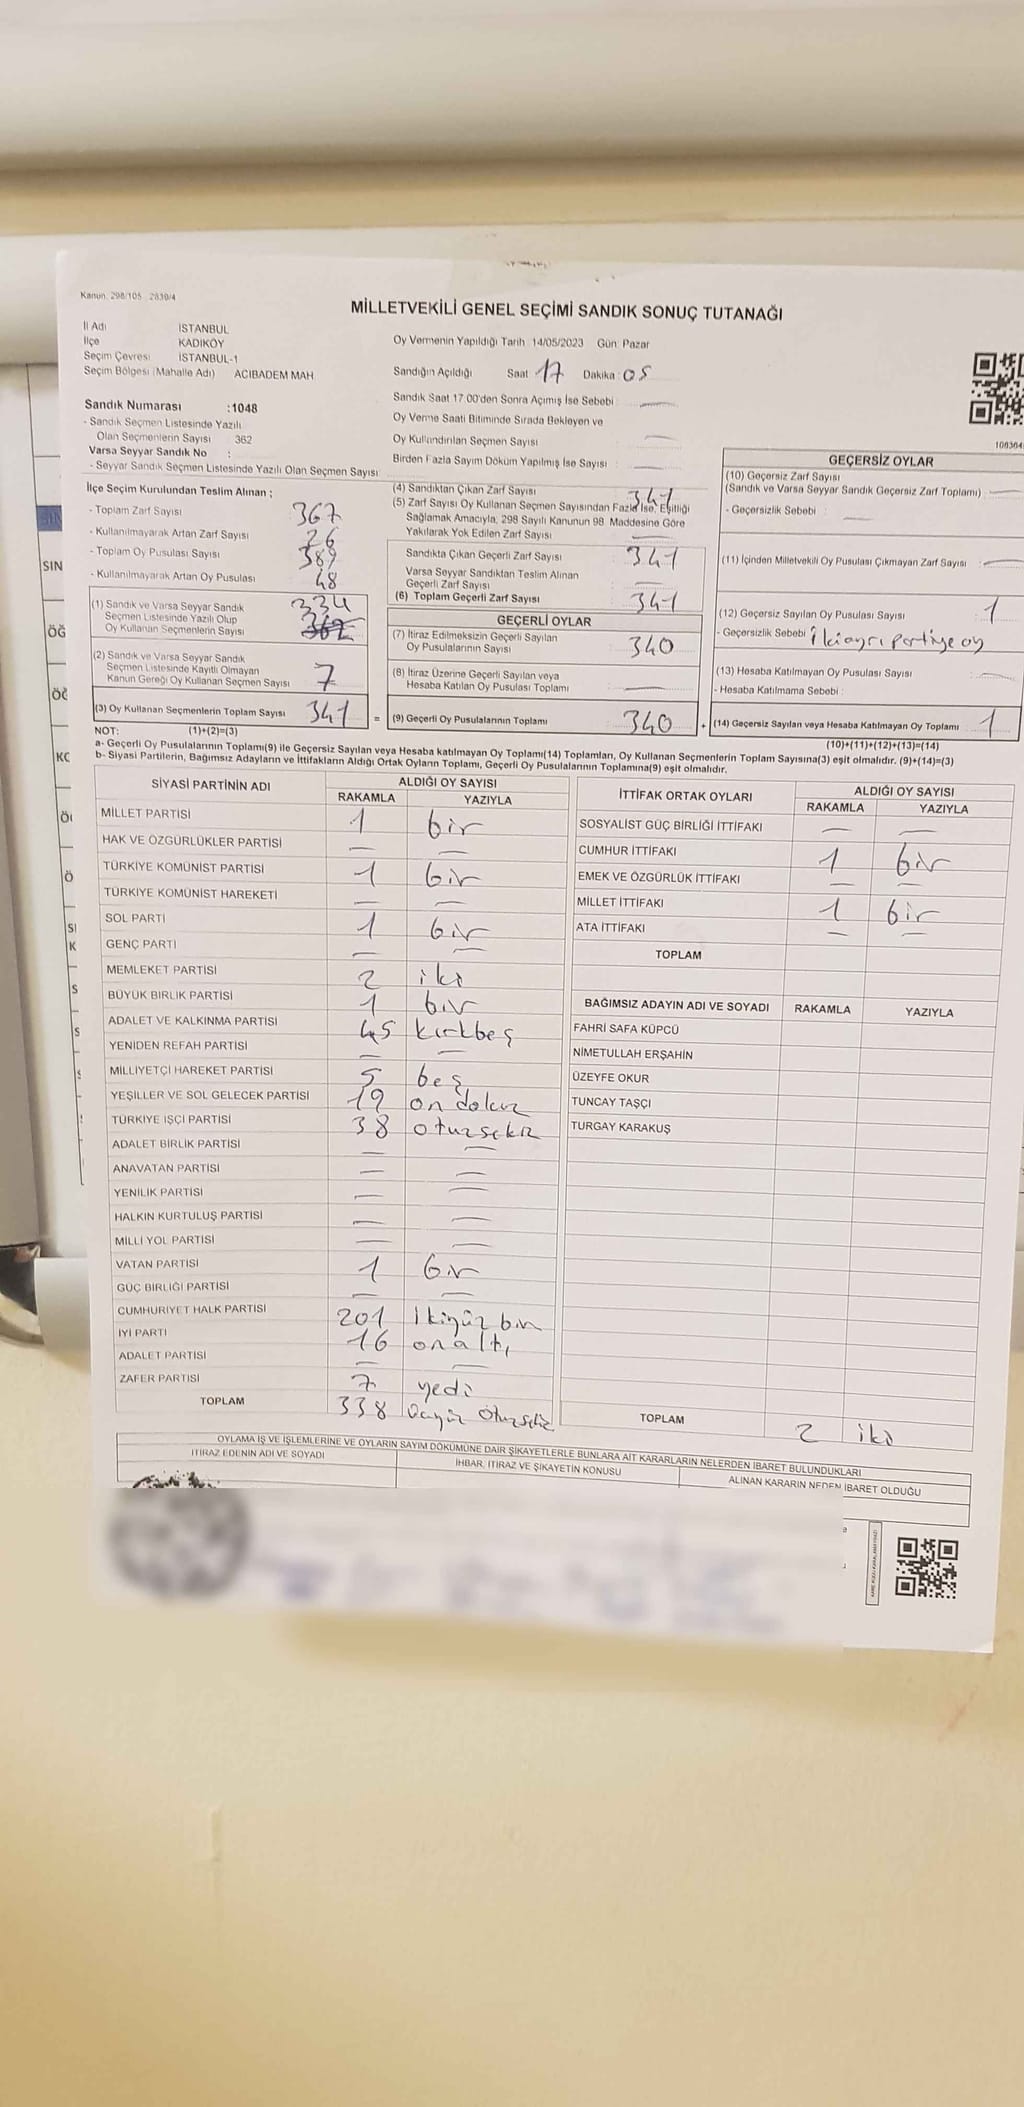 Kanun: 298/105 2839/4
MİLLETVEKİLİ GENEL SEÇİMİ SANDIK SONUÇ TUTANAĞI
İl Adı İSTANBUL
İlçe KADIKÖY
Seçim Çevresi İSTANBUL-1
Seçim Bölgesi (Mahalle Adı) ACIBADEM MAH
Sandık Numarası :1048
- Sandık Seçmen Listesinde Yazılı
Olan Seçmenlerin Sayısı 362
Varsa Seyyar Sandık No :
- Seyyar Sandık Seçmen Listesinde Yazılı Olan Seçmen Sayısı:
Oy Vermenin Yapıldığı Tarih :14/05/2023 Gün: Pazar
Sandığın Açıldığı Saat 17 Dakika 05
Sandık Saat 17:00'den Sonra Açımış İse Sebebi :
Oy Verme Saati Bitiminde Sırada Bekleyen ve
Oy Kullandırılan Seçmen Sayısı
Birden Fazla Sayım Döküm Yapılmış İse Sayısı :
İlçe Seçim Kurulundan Teslim Alınan ;
- Toplam Zarf Sayısı 367
- Kullanılmayarak Artan Zarf Sayısı 26
- Toplam Oy Pusulası Sayısı 389
- Kullanılmayarak Artan Oy Pusulası 48
(1) Sandık ve Varsa Seyyar Sandık
Seçmen Listesinde Yazılı Olup
Oy Kullanan Seçmenlerin Sayısı 334
(2) Sandık ve Varsa Seyyar Sandık
Seçmen Listesinde Kayıtlı Olmayan
Kanun Gereği Oy Kullanan Seçmen Sayısı 7
(3) Oy Kullanan Seçmenlerin Toplam Sayısı 341 =
(4) Sandıktan Çıkan Zarf Sayısı 341
(5) Zarf Sayısı Oy Kullanan Seçmen Sayısından Fazla İse, Eşitliği
Sağlamak Amacıyla, 298 Sayılı Kanunun 98 Maddesine Göre
Yakılarak Yok Edilen Zarf Sayısı
Sandıkta Çıkan Geçerli Zarf Sayısı 341
Varsa Seyyar Sandıktan Teslim Alınan
Geçerli Zarf Sayısı
(6) Toplam Geçerli Zarf Sayısı 341
GEÇERLİ OYLAR
(7) İtiraz Edilmeksizin Geçerli Sayılan
Oy Pusulalarının Sayısı 340
(8) İtiraz Üzerine Geçerli Sayılan veya
Hesaba Katılan Oy Pusulası Toplamı
(9) Geçerli Oy Pusulalarının Toplamı 340 +
GEÇERSİZ OYLAR
(10) Geçersiz Zarf Sayısı
(Sandık ve Varsa Seyyar Sandık Geçersiz Zarf Toplamı)
- Geçersizlik Sebebi :
(11) İçinden Milletvekili Oy Pusulası Çıkmayan Zarf Sayısı
(12) Geçersiz Sayılan Oy Pusulası Sayısı 1
- Geçersizlik Sebebi iki ayrı partiye oy
(13) Hesaba Katılmayan Oy Pusulası Sayısı
- Hesaba Katılmama Sebebi :
(14) Geçersiz Sayılan veya Hesaba Katılmayan Oy Toplamı 1
NOT: (1)+(2)=(3) (10)+(11)+(12)+(13)=(14)
a- Geçerli Oy Pusulalarının Toplamı(9) ile Geçersiz Sayılan veya Hesaba katılmayan Oy Toplamı(14) Toplamları, Oy Kullanan Seçmenlerin Toplam Sayısına(3) eşit olmalıdır. (9)+(14)=(3)
b- Siyasi Partilerin, Bağımsız Adayların ve İttifakların Aldığı Ortak Oyların Toplamı, Geçerli Oy Pusulalarının Toplamına(9) eşit olmalıdır.
SİYASİ PARTİNİN ADI ALDIĞI OY SAYISI
RAKAMLA YAZIYLA
MİLLET PARTİSİ 1 bir
HAK VE ÖZGÜRLÜKLER PARTİSİ
TÜRKİYE KOMÜNİST PARTİSİ 1 bir
TÜRKİYE KOMÜNİST HAREKETİ
SOL PARTİ 1 bir
GENÇ PARTİ
MEMLEKET PARTİSİ 2 iki
BÜYÜK BİRLİK PARTİSİ 1 bir
ADALET VE KALKINMA PARTİSİ 45 kırkbeş
YENİDEN REFAH PARTİSİ
MİLLİYETÇİ HAREKET PARTİSİ 5 beş
YEŞİLLER VE SOL GELECEK PARTİSİ 19 on dokuz
TÜRKİYE İŞÇİ PARTİSİ 38 otuzsekiz
ADALET BİRLİK PARTİSİ
ANAVATAN PARTİSİ
YENİLİK PARTİSİ
HALKIN KURTULUŞ PARTİSİ
MİLLİ YOL PARTİSİ
VATAN PARTİSİ 1 bir
GÜÇ BİRLİĞİ PARTİSİ
CUMHURİYET HALK PARTİSİ 201 İkiyüz bir
İYİ PARTİ 16 onaltı
ADALET PARTİSİ
ZAFER PARTİSİ 7 yedi
TOPLAM 338 üçyüz otuzsekiz
İTTİFAK ORTAK OYLARI ALDIĞI OY SAYISI
RAKAMLA YAZIYLA
SOSYALİST GÜÇ BİRLİĞİ İTTİFAKI
CUMHUR İTTİFAKI 1 bir
EMEK VE ÖZGÜRLÜK İTTİFAKI
MİLLET İTTİFAKI 1 bir
ATA İTTİFAKI
TOPLAM
BAĞIMSIZ ADAYIN ADI VE SOYADI RAKAMLA YAZIYLA
FAHRİ SAFA KÜPCÜ
NİMETULLAH ERŞAHİN
ÜZEYFE OKUR
TUNCAY TAŞÇI
TURGAY KARAKUŞ
TOPLAM 2 iki
OYLAMA İŞ VE İŞLEMLERİNE VE OYLARIN SAYIM DÖKÜMÜNE DAİR ŞİKAYETLERLE BUNLARA AİT KARARLARIN NELERDEN İBARET BULUNDUKLARI
İTİRAZ EDENİN ADI VE SOYADI İHBAR, İTİRAZ VE ŞİKAYETİN KONUSU ALINAN KARARIN NEDEN İBARET OLDUĞU